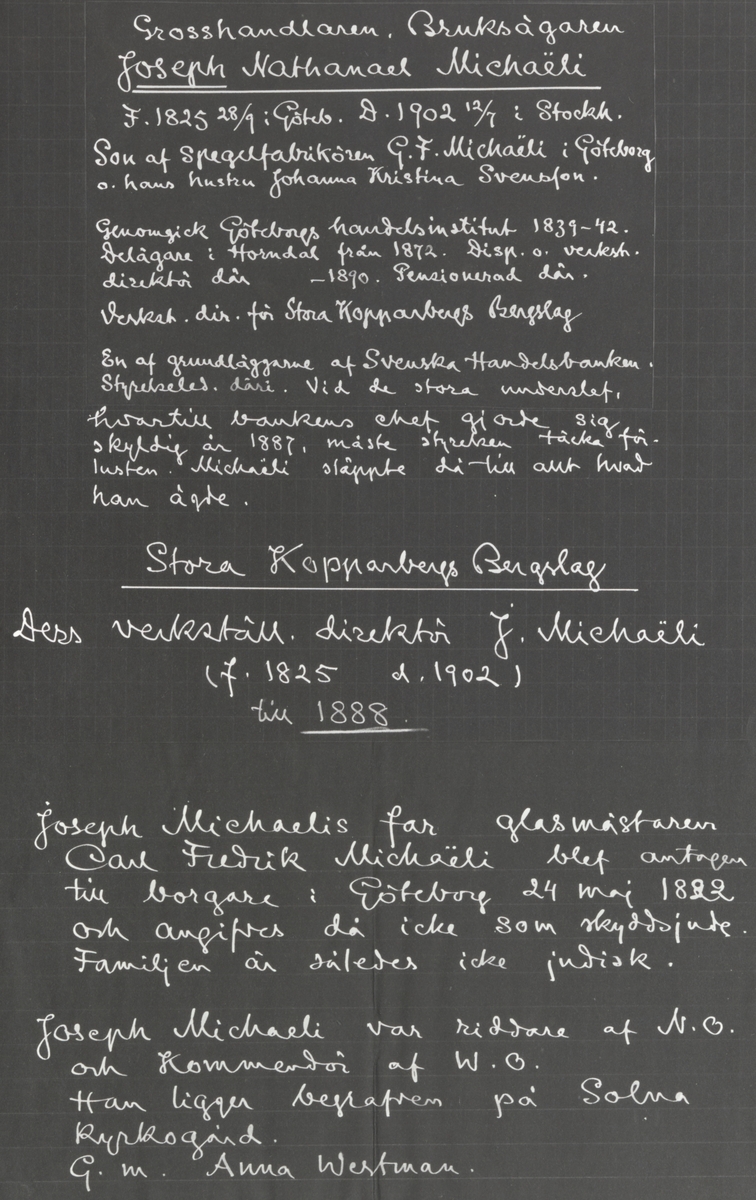 Grosshandlaren, Bruksägaren
Joseph Nathanael Michaëli
F. 1825 28/9 i Göteb. D. 1902 12/7 i Stockh.
Son af spegelfabrikören G. F. Michaëli i Göteborg
o. hans hustru Johanna Kristina Svensson.
Genomgick Göteborgs handelsinstitut 1839-42.
Delägare i Horndal från 1872. Disp. o. verkst.
direktör där -1890. Pensionerad där.
Verkst. dir. för Stora Kopparbergs Bergslag
En af grundläggarne af Svenska Handelsbanken.
Styrelseled. däri. Vid de stora underslef,
hvartill bankens chef gjorde sig
skyldig år 1887, måste styrelsen täcka för-
lusten. Michaëli släppte då till allt hvad
han ägde.
Stora Kopparbergs Bergslag
Dess verkställ. direktör J. Michaëli
(f. 1825 d. 1902)
till 1888.
Joseph Michaelis far glasmästaren
Carl Fredrik Michaëli blef antagen
till borgare i Göteborg 24 maj 1822
och angifves då icke som skyddsjude.
Familjen är således icke judisk.
Joseph Michaeli var riddare af N.O.
och Kommendör af W.O.
Han ligger begrafven på Solna
Kyrkogård.
G. m. Anna Westman.